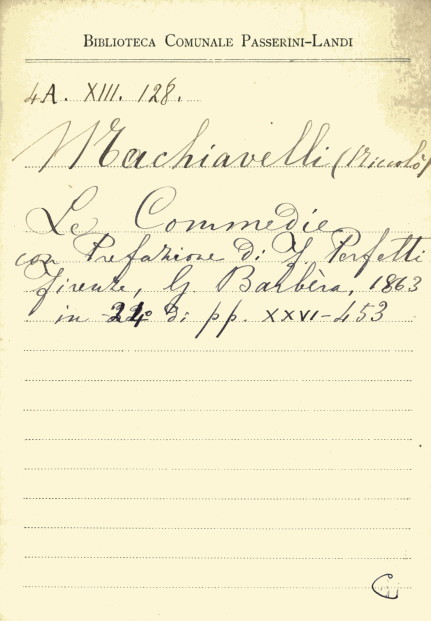 Biblioteca Comunale Passerini-Landi
4A. XIII. 128.
Machiavelli (Niccolò)
Le Commedie
con Prefazione di F. Perfetti
Firenze, G Barbèra, 1863
in 24º di pp. XXVI-453